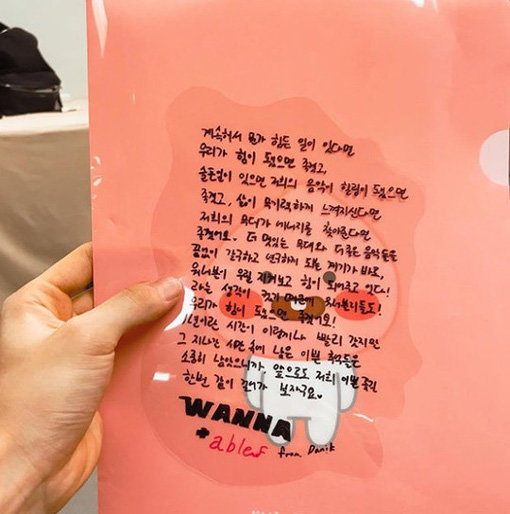 계속해서 뭔가 힘든 일이 있다면
우리가 힘이 됐으면 좋겠고,
슬픈일이 있으면 저희의 음악이 힐링이 됐으면
좋겠고, 삶이 무기력하게 느껴지신다면
저희의 무대가 에너지를 찾아준다면
좋겠어요. 더 멋있는 무대와 더 좋은 음악들을
끊임없이 갈구하고 연구하게 되는 계기가 바로,
워너블이 우릴 지켜보고 힘이 돼어주고 있다!
라는 생각이 크기 때문에 워너블이들도!
우리가 힘이 됐으면 좋겠어요!
1년이란 시간이 이렇게나 빨리 갔지만
그 지나간 시간 속에 남은 이쁜 추억들은
소중히 남았으니까 앞으로도 저희 이쁜 추억
한번 같이 걸어가 보자구요♥
WANNA
+able
from Danik